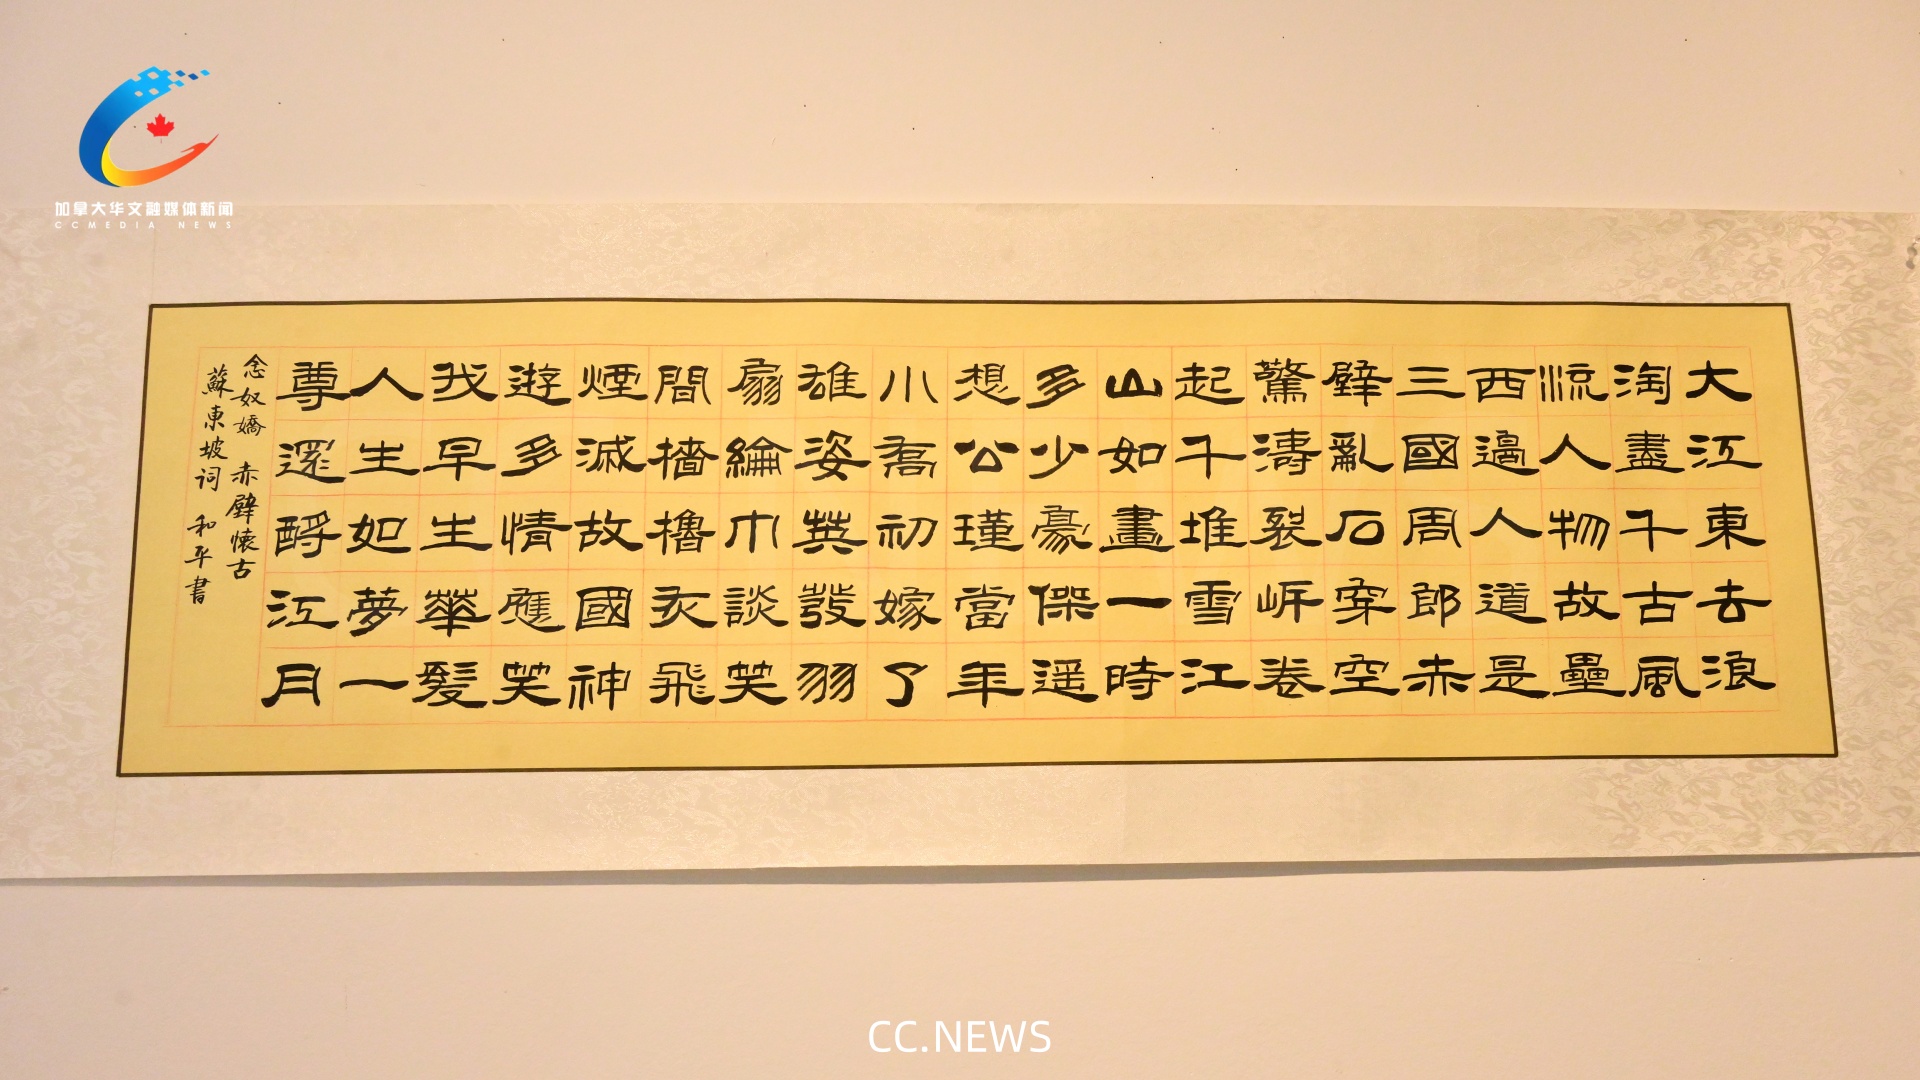 加拿大华文融媒体新闻
CCMEDIA NEWS
大江東去浪
淘盡千古風
流人物故壘
西邊人道是
三國周郎赤
壁亂石穿空
驚濤裂岸卷
起千堆雪江
山如畫一時
多少豪傑遥
想公瑾當年
小喬初嫁了
雄姿英發羽
扇綸巾談笑
間檣櫓灰飛
煙滅故國神
遊多情應笑
我早生華髮
人生如夢一
尊還酹江月
念奴嬌 赤壁懷古
蘇東坡词 和平書
CC.NEWS